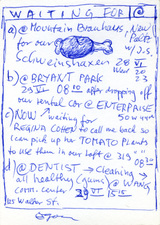 WAITING FOR @
a) @ Mountain Brauhaus, New Paltz
for our w/ J.S.
Schweinshaxen 28 VI
Wed 2023
b) @ BRYANT PARK
29 VI 08 10 after dropping off
our rental car @ ENTERPRISE
50 W
c) NOW / waiting for
REGINA COHEN to call me back so
I can pick up her TOMATO PLANTS
to use them in our loft @ 315"
d) @ DENTIST → cleaning →
all healthy (gums) @ WANG
comm. center 29 VI 15 15
Walker St.